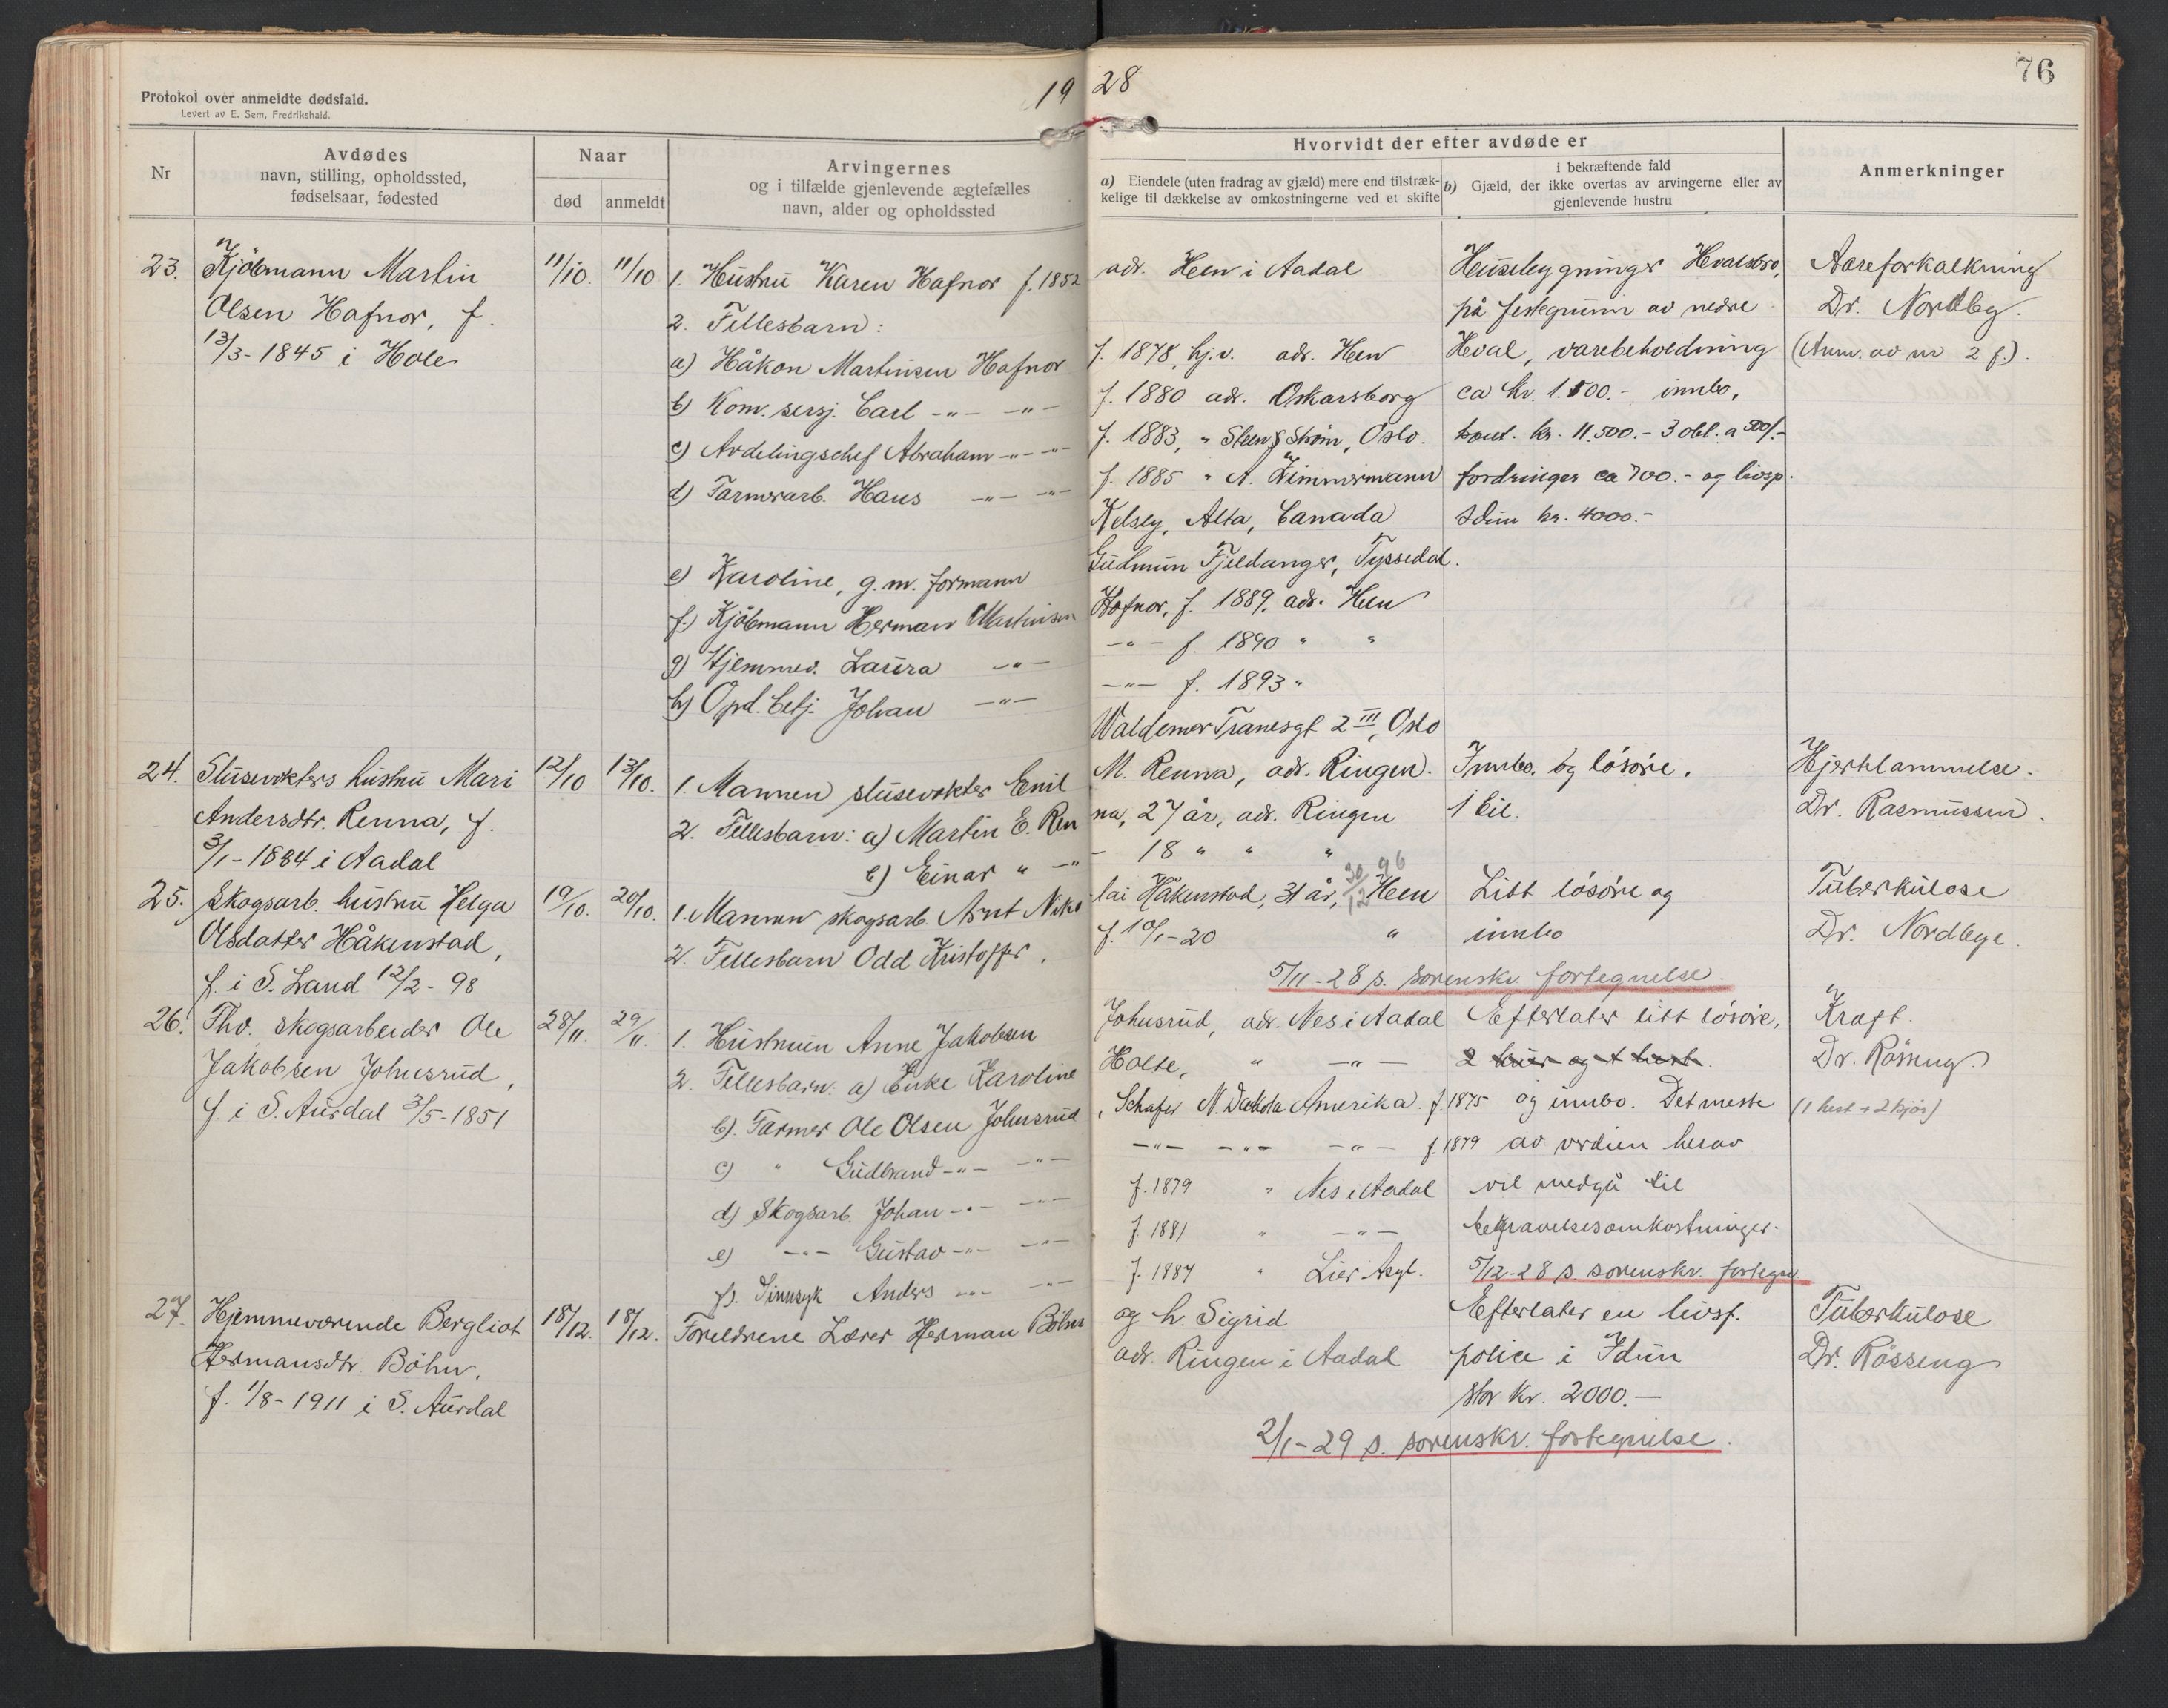 Protokol over anmeldte dødsfald.
Levert av E. Sem, Fredrikshald.
19 28
76
Nr
Avdødes
navn, stilling, opholdssted,
fødselsaar, fødested
Naar
død
anmeldt
Arvingernes
og i tilfælde gjenlevende ægtefælles
navn, alder og opholdssted
Hvorvidt der efter avdøde er
a) Eiendele (uten fradrag av gjæld) mere end tilstræk-
kelige til dækkelse av omkostningerne ved et skifte
i bekræftende fald
b) Gjæld, der ikke overtas av arvingerne eller av
gjenlevende hustru
Anmerkninger
23. Kjöbmann Martin
Olsen Hafnor, f.
13/3-1845 i Hole
11/10. 11/10
1. Hustru Karen Hafnor f. 1852 adr. Heen i Aadal
2. Fellesbarn:
a) Håkon Martinsen Hafnor f. 1878, hj.v. adr. Hen
b) Kom. sersj. Carl -"- -"- f. 1880 adr. Oskarsborg
c) Avdelingschef Abraham -"- -"- f. 1883, " Steen & Strøm, Oslo.
d) Farmerarb. Hans -"- -"- f. 1885 " A. Zimmermann
Kelsey, Alta, Canada
e) Karoline, g.m. formann Gudmun Fjeldanger, Tyssedal.
f.) Kjöbmann Herman Martinsen Hafnor, f. 1889. adr. Heen
g) Hjemmev. Laura -"- -"- f. 1890 " "
h) Opd. betj. Johan -"- -"- f. 1893 "
Waldemar Tranesgt 2 III, Oslo
Husebygninger Hvalsbro,
på festegrunn av nedre
Hval, varebeholdning
ca kr. 1.500.- innbo,
kr. 11.500.- 3 obl. a 500/.-
fordringer ca 700.- og livsp.
Idun kr. 4000.-
Aareforkalkning
Dr. Nordbg.
(Anm. av nr 2 f.).
24. Slusevokters hustru Mari
Andersdtr. Renna, f.
3/1-1884 i Aadal
12/10 13/10.
1. Mannen slusevokter Emil M. Renna, adr. Ringen.
2. Fellesbarn: a) Martin E. Renna, 27 år, adr. Ringen
b) Einar " -"- 18 " " "
Innbo. og lösöre.
1 bil.
Hjertelammelse.
Dr. Rasmussen.
25. Skogsarb. hustru Helga
Olsdatter Håkenstad,
f. i S. Land 12/2-98
19/10. 20/10.
1. Mannen skogsarb. Arnt Nikolai Håkenstad, 31 år, 30/12 96 Heen
2. Fellesbarn Odd Kristoffer, f. 10/1-20 "
Litt lösöre og
innbo
Tuberkulose
Dr. Nordbye.
5/11-28 s. sorenskr. fortegnelse.
26. Fhv. skogsarbeider Ole
Jakobsen Johnsrud,
f. i S. Aurdal 3/5-1851
28/11. 29/11.
1. Hustruen Anne Jakobsen Johnsrud, adr. Nes i Aadal
2. Fellesbarn: a) Enke Karoline Holte, " -"-
b). Farmer Ole Olsen Johnsrud, Schafer N. Dakota Amerika. f. 1875
c) " Gudbrand -"- -"- -"- -"- -"- f. 1879
d) Skogsarb. Johan -"- -"- f. 1879 " Nes i Aadal
e) -"- Gustav -"- -"- f. 1881 " -"-
f). Sinnsyk Anders -"- -"- f. 1887 " Lier Asyl.
Efterlater litt lösöre,
2 kuer og 1 hest.
og innbo. Det meste
av verdien herav
vil medgå til
begravelsesomkostninger.
5/12-28 s. sorenskr. fortegn
Kræft.
Dr. Rösseng.
(1 hest + 2 kjör)
27. Hjemmeværende Bergliot
Hermansdtr. Böhn,
f. 1/8-1911 i S. Aurdal
18/12. 18/12.
Foreldrene Lærer Herman Böhn og h. Sigrid
adr. Ringen i Aadal
Efterlater en livsf.
police i Idun
stor kr. 2000.-
Tuberkulose
Dr. Rösseng
2/1-29 s. sorenskr. fortegnelse.